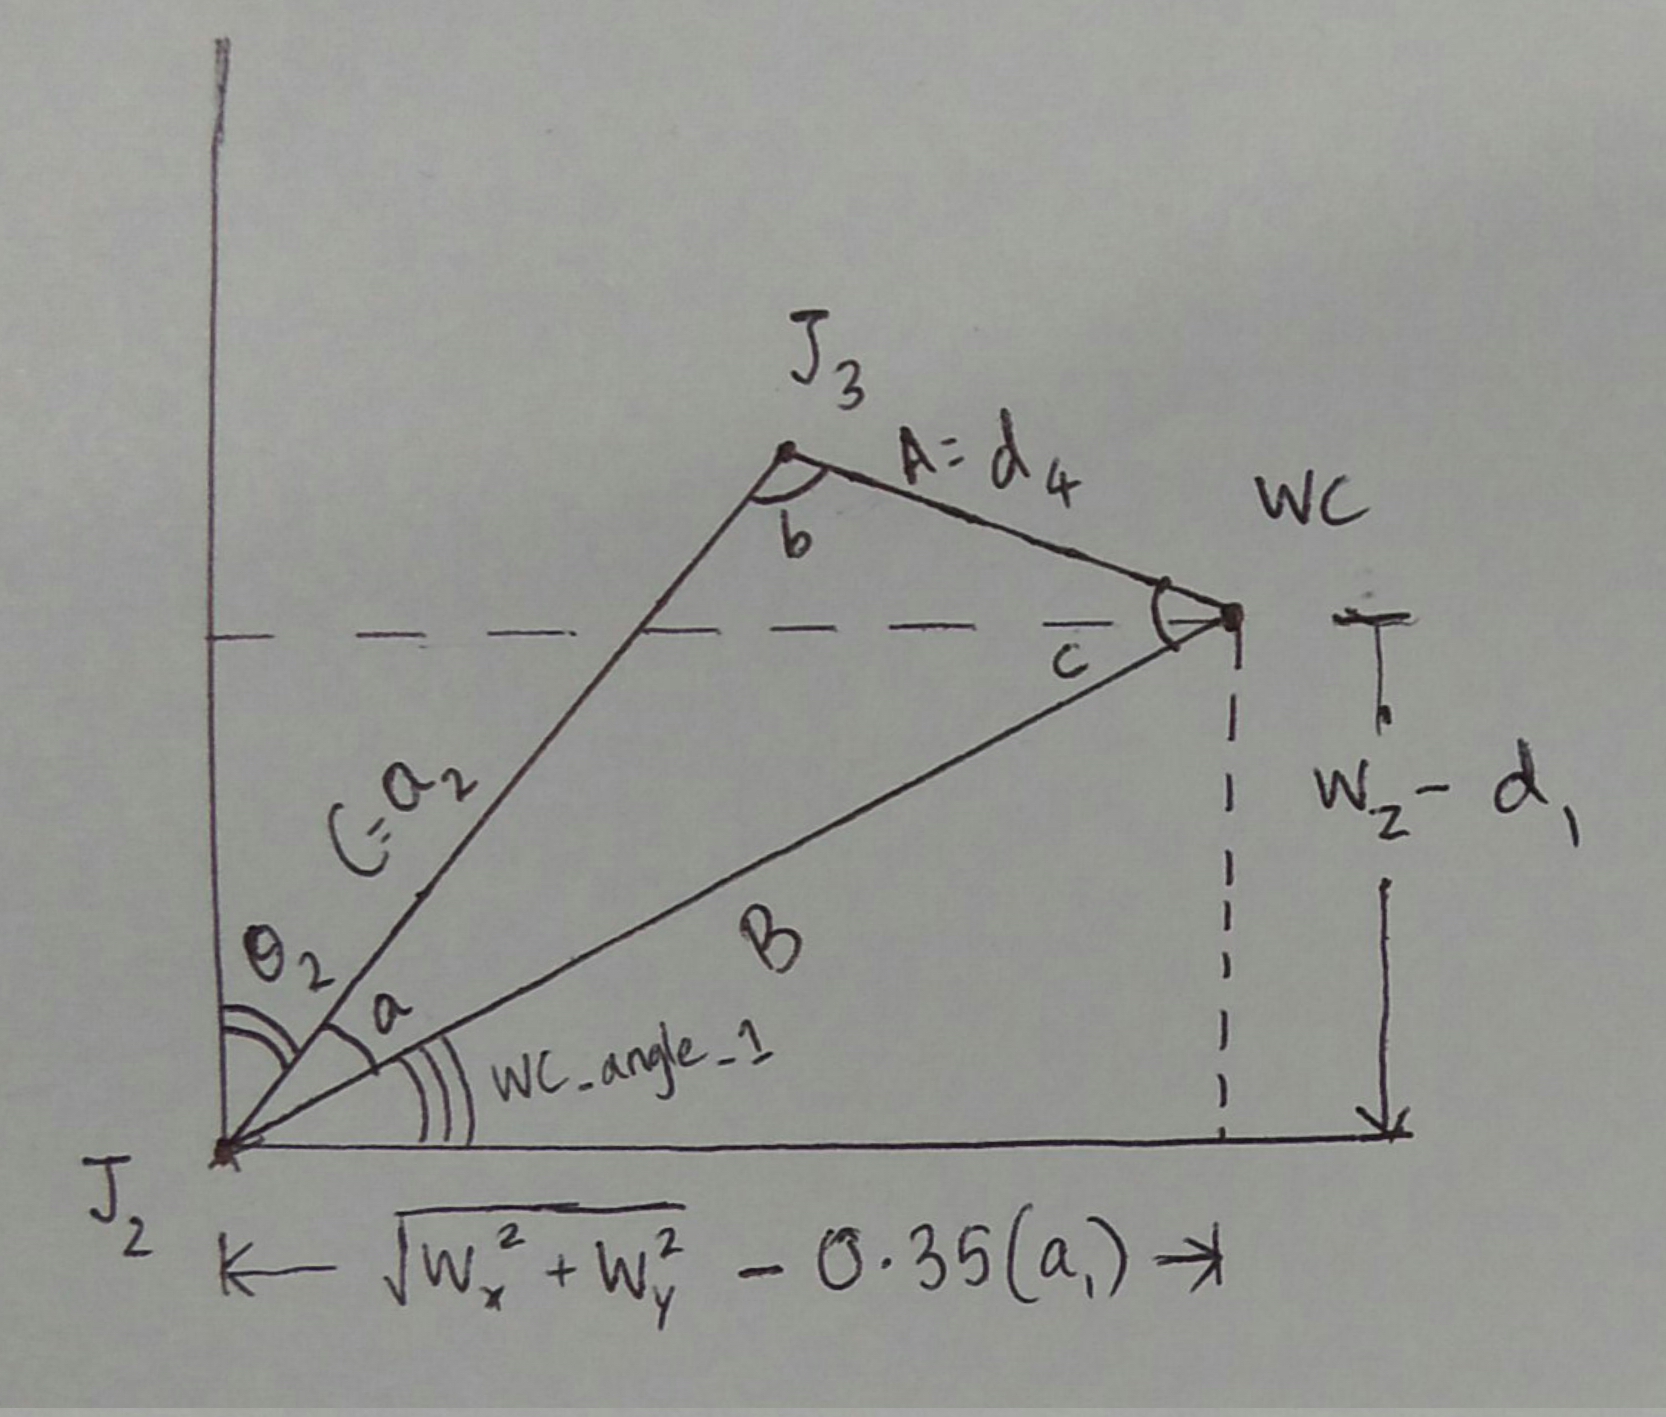 J₃
A = d₄
WC
b
c
C = a₂
W_z - d₁
θ₂
a
B
WC_angle_1
J₂
√(W_x² + W_y²) - 0.35(a₁)